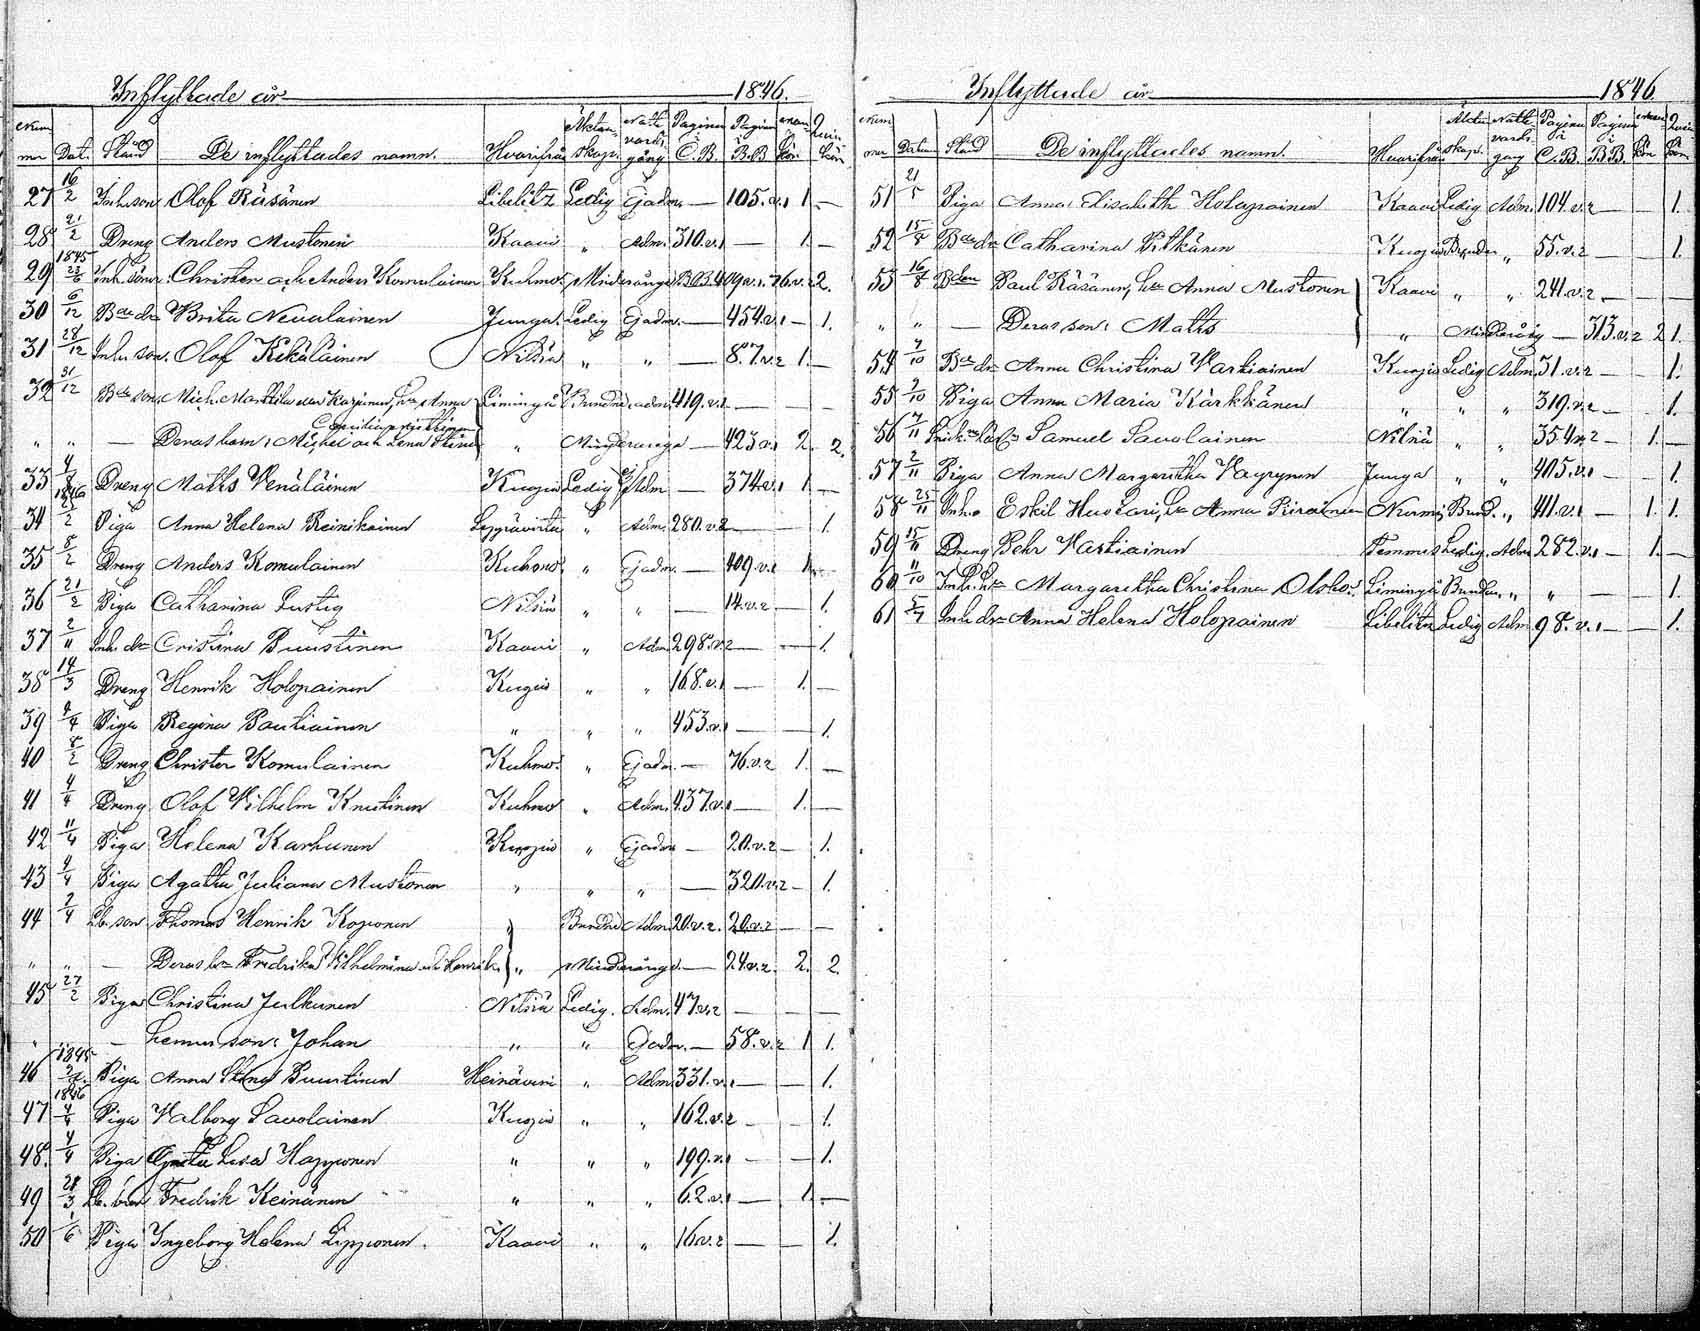 Inflyttade år 1846.
Num mer Dat. Stånd De inflyttades namn. Hvarifrån Äktenskap. Nattvardsgång Pagina i C.B. Pagina i B.B. Mankön Qvinkön
27 16/2 Inh. son Olof Räsänen Libelitz Ledig Ej adm. — 105.v.1 1. —
28 21/2 Dreng Anders Mustonen Kaavi " Adm. 310.v.1 — 1. —
1845
29 23/6 Inh. söner Christer och Anders Komulainen Kuhmo. Minderåriga 76.v.2 2.
30 6/12 B:de dr Brita Nevalainen Junga. Ledig Ej adm. — 454.v.1 — 1.
31 28/12 Inh. son. Olof Kekäläinen Nilsiä " " — 87.v.2 1. —
32 31/12 B:de son. Mich. Mattila Karjainen, h:u Anna Limingä Bundne adm. 419.v.1 — — —
" " — Deras barn: Michel och Lena Stina " Minderåriga — 423.v.1 2. 2.
33 4/8 Dreng Matts Venäläinen Kuopio Ledig Ej Adm — 374.v.1 1. —
1846
34 22/2 Piga Anna Helena Reinikainen Leppävirta " Adm. 280.v.2 — — 1.
35 8/2 Dreng Anders Komulainen Kuhmo. " Ej adm. — 409.v.1 1. —
36 21/2 Piga Catharina Lustig Nilsiä " " — 14.v.2 — 1.
37 2/11 Inh. dr Cristina Puustinen Kaavi " Adm. 298.v.2 — — 1.
38 14/3 Dreng Henrik Holopainen Kuopio " " 168.v.1 — 1. —
39 4/4 Piga Regina Pautiainen " " " 453.v.1 — — 1.
40 8/2 Dreng Christer Komulainen Kuhmo. " Ej adm. — 76.v.2 1. —
41 4/4 Dreng Olof Vilhelm Knutinen Kuhmo " Adm. 437.v.1 — 1. —
42 11/4 Piga Helena Karhunen Kuopio " Ej adm — 20.v.2 — 1.
43 4/4 Piga Agatha Juliana Mustonen " " " — 320.v.2 — 1.
44 2/4 Lb. son. Thomas Henrik Koponen " Bundne Adm. 20.v.2. 20.v.2 — —
" " — Deras b:n Fredrika Vilhelmina och Henrik " Minderåriga. — 24.v.2. 2. 2
45 27/2 Piga Christina Julkunen Nilsiä Ledig. Adm. 47.v.2 — — —
" — hennes son: Johan " " Ej adm. — 58.v.2 1 1.
1845
46 Piga Anna Stina Puustinen Heinävesi " Adm. 331.v.1 — — 1.
1846
47 4/4 Piga Valborg Savolainen Kuopio " " 162.v.2 — — 1.
48. 4/4 Piga Greta Lisa Happonen " " " 199.v.1 — — 1.
49 28/3 Fredrik Keinänen " " " 62.v.1 — 1. —
50 1/6 Piga Ingeborg Helena Lipponen. Kaavi " " 16.v.2 — — 1.
Inflyttade år 1846.
Num mer Datum Stånd De inflyttades namn. Hvarifrån Äktenskap. Nattvardsgång Pagina i C.B. Pagina i B.B. Mankön Qvinkön
51 21/5 Piga Anna Elisabeth Holopainen Kaavi Ledig Adm. 104.v.2 — — 1.
52 15/5 B:de dr Catharina Pitkänen Kuopio Bunden " 55.v.2 — — 1.
53 16/8 B:den Paul Räsänen, h:u Anna Mustonen Kaavi " " 241.v.2 — — —
" " — Deras son: Matts " Minderårig — 313.v.2 2 1.
54 4/10 B:de dr Anna Christina Vartiainen Kuopio Ledig Adm. 31.v.2 — — 1.
55 2/10 Piga Anna Maria Kärkkänen " " " 319.v.2 — — 1.
56 7/11 Samuel Savolainen Nilsiä " " 354.v.2 — 1. —
57 2/11 Piga Anna Margaretha Väyrynen Junga " " 405.v.1 — — 1.
58 25/11 Inh. Eskil Huskari, h:u Anna Piirainen Nurmis Bund. " 411.v.1 — 1. 1.
59 15/11 Dreng Pehr Vartiainen Ledig. Adm. 282.v.1 — 1. —
60 11/10 Inh. h:u Margaretha Christina Limingä Bunden " " — — 1.
61 5/7 Inh. dr Anna Helena Holopainen Libelitz Ledig Adm. 98.v.1 — — 1.